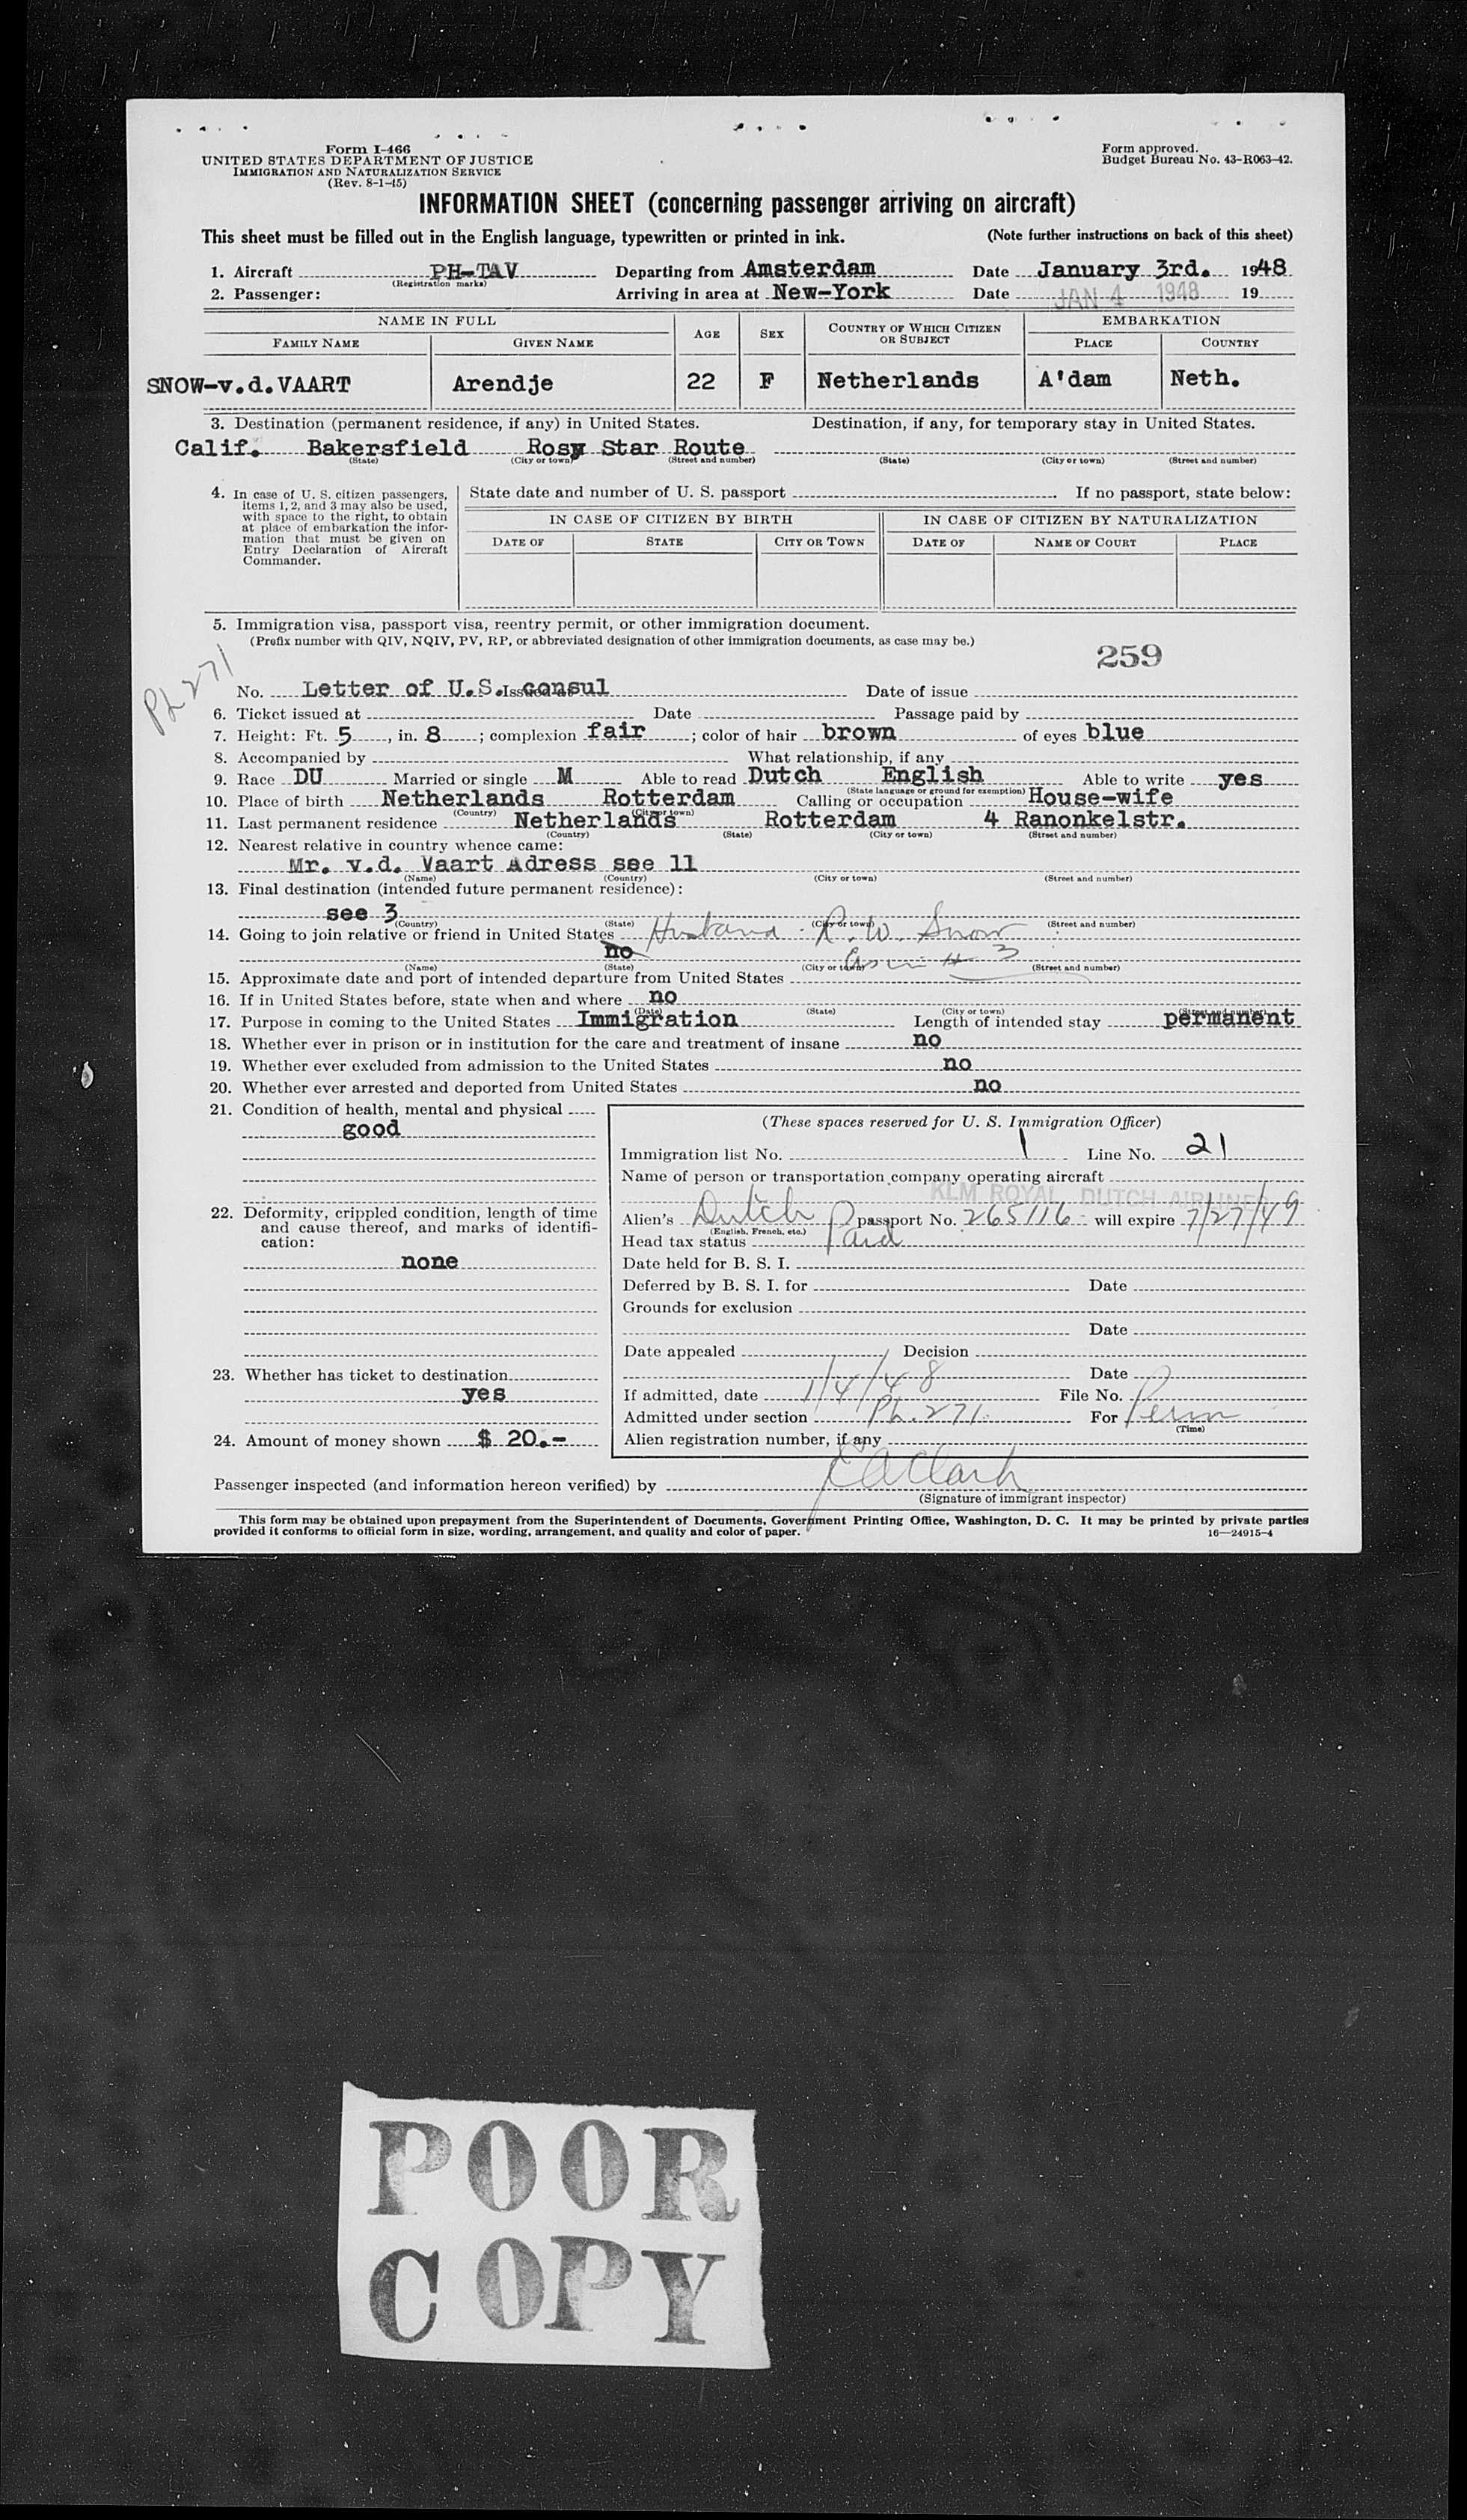 Form I-466
UNITED STATES DEPARTMENT OF JUSTICE
IMMIGRATION AND NATURALIZATION SERVICE
(Rev. 8-1-45)
Form approved.
Budget Bureau No. 43-R063-42.
INFORMATION SHEET (concerning passenger arriving on aircraft)
This sheet must be filled out in the English language, typewritten or printed in ink. (Note further instructions on back of this sheet)
1. Aircraft PH-TAV Departing from Amsterdam Date January 3rd. 1948
(Registration marks)
2. Passenger: Arriving in area at New-York Date JAN 4 1948 19
NAME IN FULL AGE SEX COUNTRY OF WHICH CITIZEN OR SUBJECT EMBARKATION
FAMILY NAME GIVEN NAME PLACE COUNTRY
SNOW-v.d.VAART Arendje 22 F Netherlands A'dam Neth.
3. Destination (permanent residence, if any) in United States. Destination, if any, for temporary stay in United States.
Calif. Bakersfield Rosy Star Route
(State) (City or town) (Street and number) (State) (City or town) (Street and number)
4. In case of U. S. citizen passengers, items 1, 2, and 3 may also be used, with space to the right, to obtain at place of embarkation the information that must be given on Entry Declaration of Aircraft Commander.
State date and number of U. S. passport If no passport, state below:
IN CASE OF CITIZEN BY BIRTH IN CASE OF CITIZEN BY NATURALIZATION
DATE OF STATE CITY OR TOWN DATE OF NAME OF COURT PLACE
5. Immigration visa, passport visa, reentry permit, or other immigration document.
(Prefix number with QIV, NQIV, PV, RP, or abbreviated designation of other immigration documents, as case may be.)
259
PL 271
No. Letter of U.S. Issued at consul Date of issue
6. Ticket issued at Date Passage paid by
7. Height: Ft. 5, in. 8; complexion fair; color of hair brown of eyes blue
8. Accompanied by What relationship, if any
9. Race DU Married or single M Able to read Dutch English Able to write yes
(State language or ground for exemption)
10. Place of birth Netherlands Rotterdam Calling or occupation House-wife
(Country) (City or town)
11. Last permanent residence Netherlands Rotterdam 4 Ranonkelstr.
(Country) (State) (City or town) (Street and number)
12. Nearest relative in country whence came:
Mr. v.d. Vaart Adress see 11
(Name) (Country) (City or town) (Street and number)
13. Final destination (intended future permanent residence):
see 3
(Country) (State) (City or town) (Street and number)
14. Going to join relative or friend in United States Husband - R. W. Snow
no as in # 3
(Name) (State) (City or town) (Street and number)
15. Approximate date and port of intended departure from United States
16. If in United States before, state when and where no
(Date) (State) (City or town) (Street and number)
17. Purpose in coming to the United States Immigration Length of intended stay permanent
18. Whether ever in prison or in institution for the care and treatment of insane no
19. Whether ever excluded from admission to the United States no
20. Whether ever arrested and deported from United States no
21. Condition of health, mental and physical
good
22. Deformity, crippled condition, length of time and cause thereof, and marks of identification:
none
23. Whether has ticket to destination
yes
24. Amount of money shown $ 20.-
(These spaces reserved for U. S. Immigration Officer)
Immigration list No. 1 Line No. 21
Name of person or transportation company operating aircraft
KLM ROYAL DUTCH AIRLINES
Alien's Dutch passport No. 265116 will expire 7/27/49
(English, French, etc.)
Head tax status Paid
Date held for B. S. I.
Deferred by B. S. I. for Date
Grounds for exclusion
Date
Date appealed Decision
Date
If admitted, date 1/4/48 File No.
Admitted under section PL. 271. For Perm
(Time)
Alien registration number, if any
Passenger inspected (and information hereon verified) by C A Clark
(Signature of immigrant inspector)
This form may be obtained upon prepayment from the Superintendent of Documents, Government Printing Office, Washington, D. C. It may be printed by private parties
provided it conforms to official form in size, wording, arrangement, and quality and color of paper. 16—24915-4
POOR
COPY